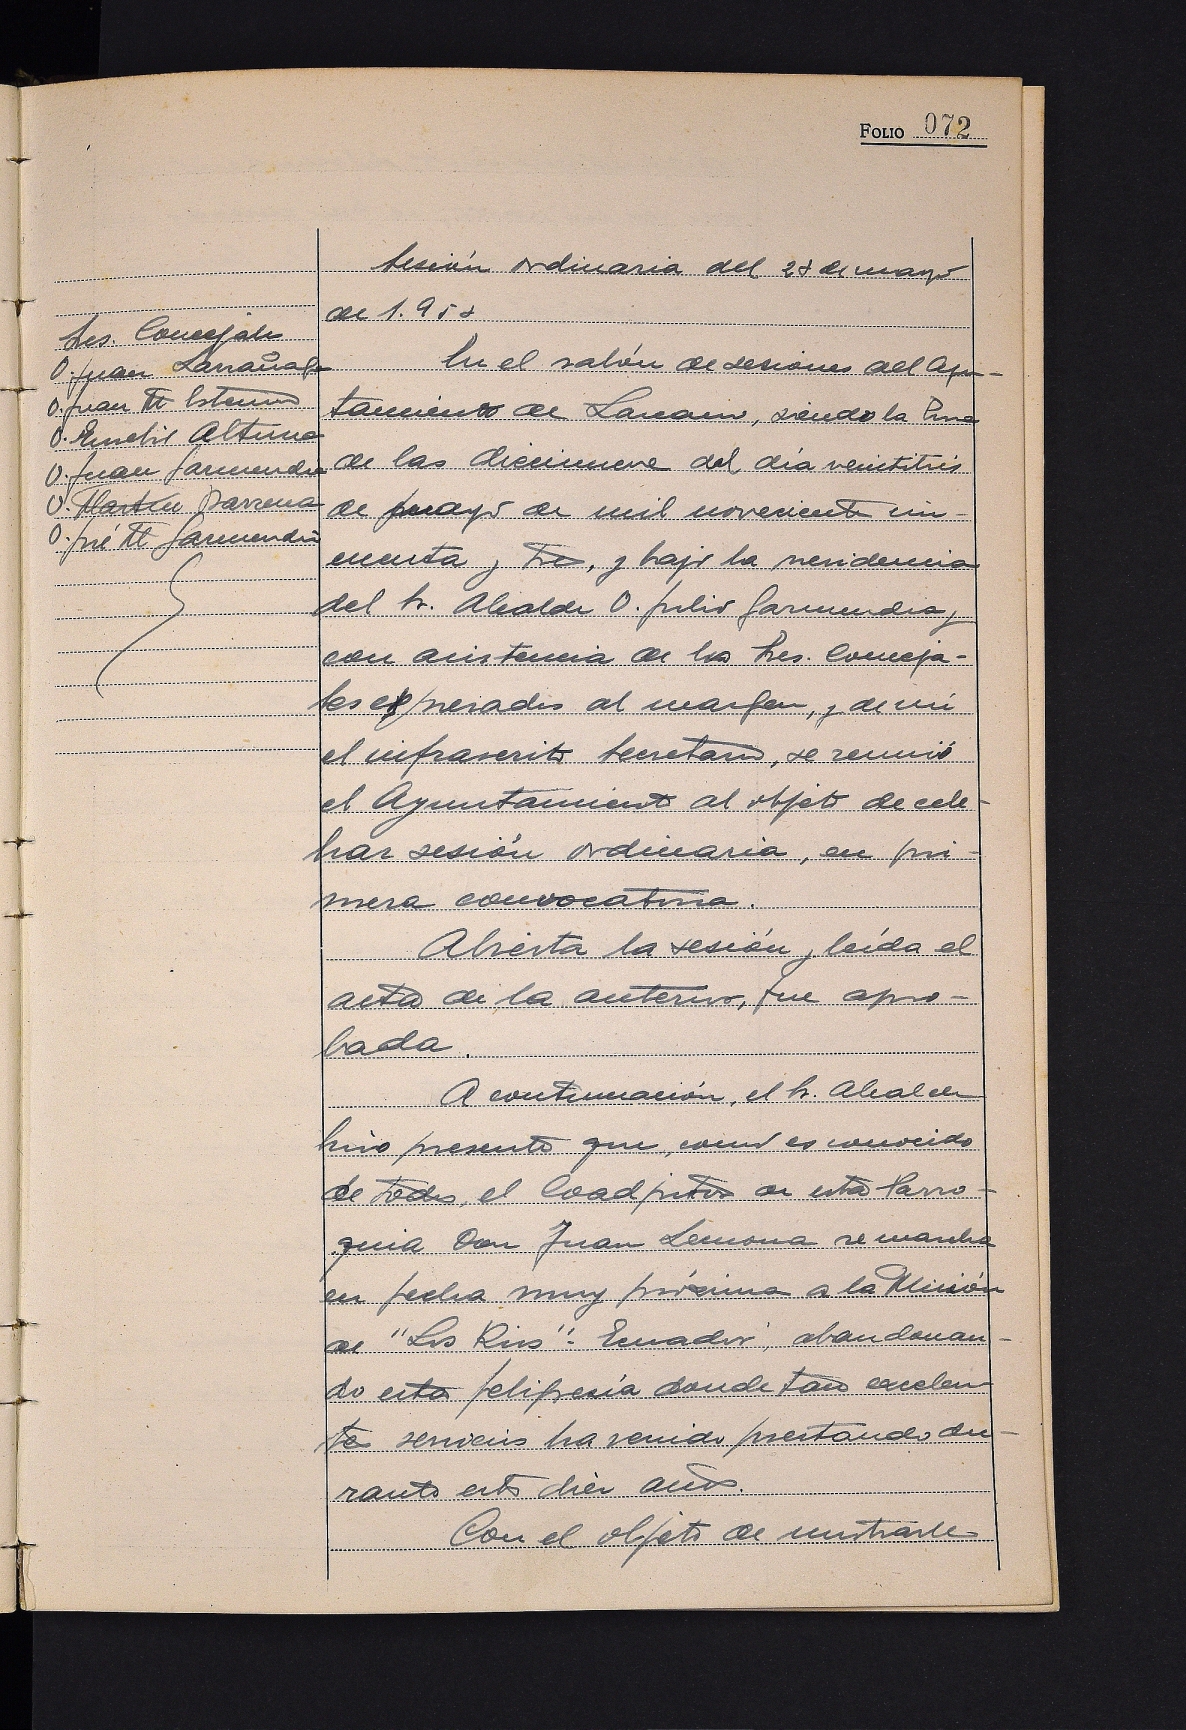 FOLIO 072
Sesión ordinaria del 23 de mayo
de 1.953
Sres. Concejales
D. Juan Larrañaga
D. Juan Mª
D. Emilio Altuna
D. Juan Garmendia
D. Martín Barrena
D. José Mª Garmendia
En el salón de sesiones del Ayun-
tamiento de Lazcano, siendo la hora
de las diecinueve del día veintitrés
de mayo de mil novecientos cin-
cuenta y tres, y bajo la presidencia
del Sr. Alcalde D. Julio Garmendia, y
con asistencia de los Sres. Conceja-
les expresados al margen, y de mí
el infrascrito Secretario, se reunió
el Ayuntamiento al objeto de cele-
brar sesión ordinaria, en pri-
mera convocatoria.
Abierta la sesión y leída el
acta de la anterior, fue apro-
bada.
A continuación, el Sr. Alcalde
hizo presente que, como es conocido
de todos, el Coadjutor de esta Parro-
quia Don Juan Lemona se marcha
en fecha muy próxima a la Misión
de "Los Rios"- Ecuador, abandonan-
do esta feligresía donde tan excelen-
tes servicios ha venido prestando du-
rante estos diez años.
Con el objeto de mostrarle